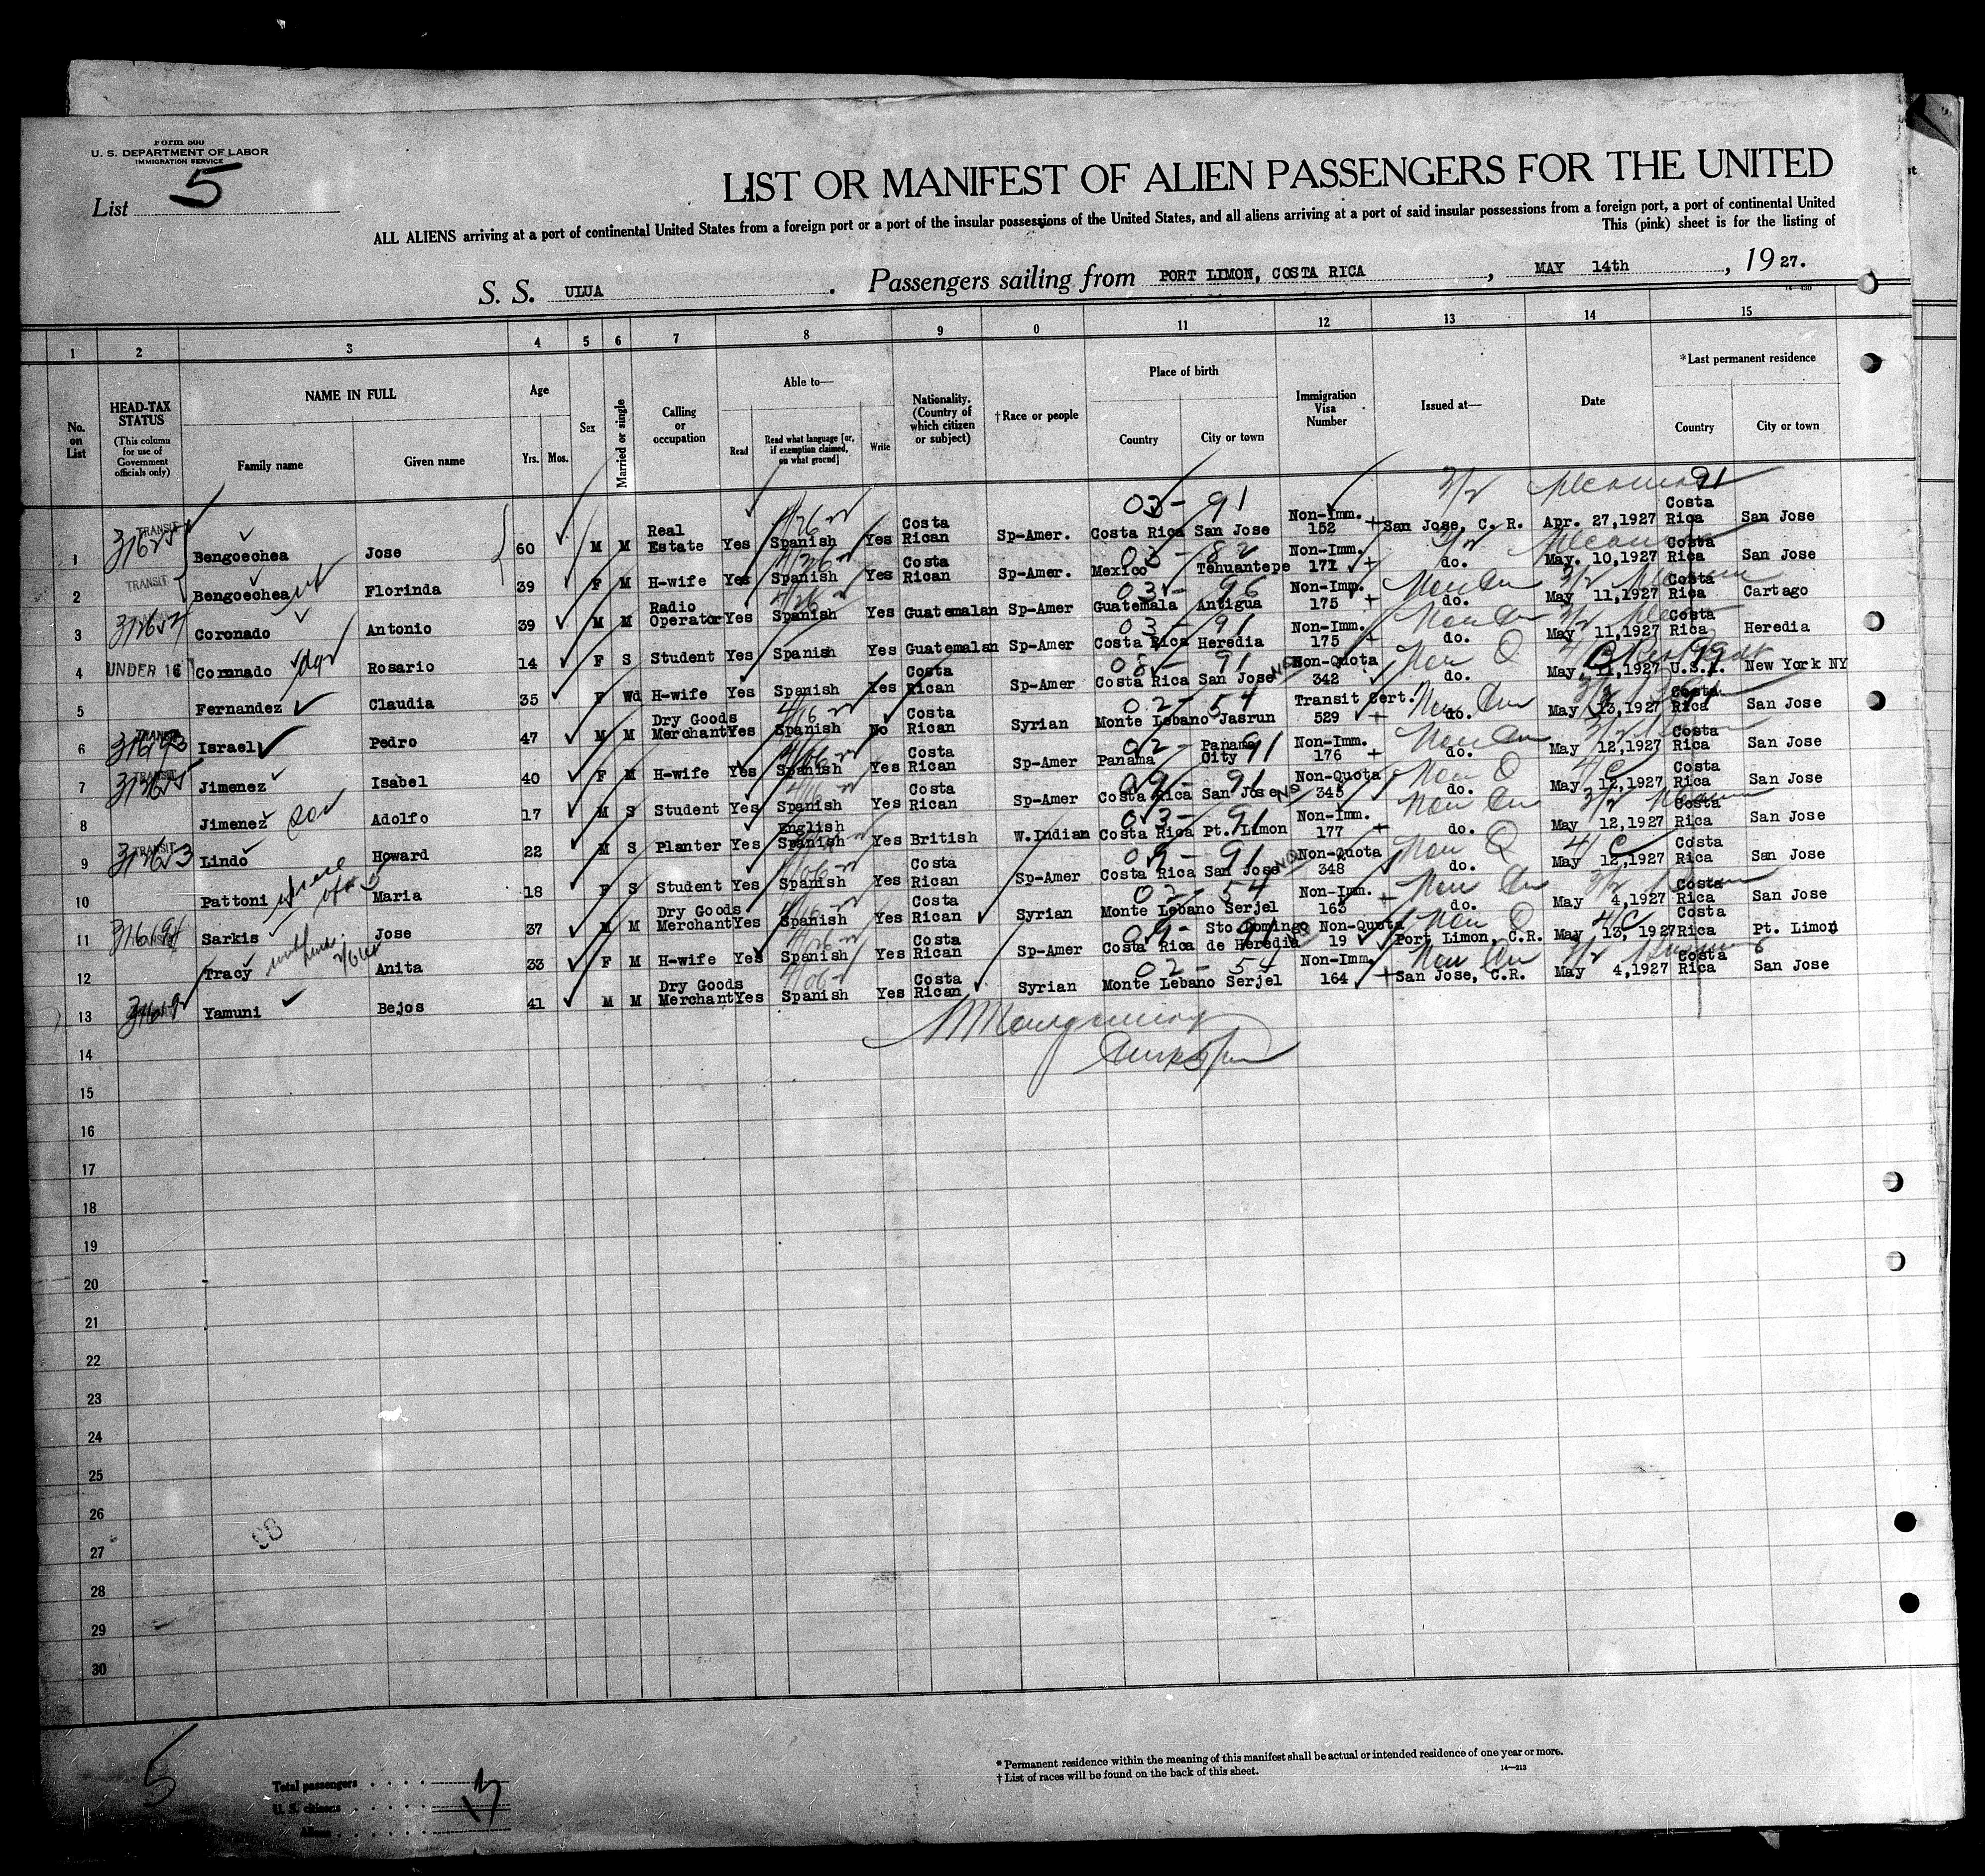 Form 500
U. S. DEPARTMENT OF LABOR
IMMIGRATION SERVICE
List 5
LIST OR MANIFEST OF ALIEN PASSENGERS FOR THE UNITED
ALL ALIENS arriving at a port of continental United States from a foreign port or a port of the insular possessions of the United States, and all aliens arriving at a port of said insular possessions from a foreign port, a port of continental United
This (pink) sheet is for the listing of
S. S. ULUA . Passengers sailing from PORT LIMON, COSTA RICA , MAY 14th , 19 27.
1 2 3 4 5 6 7 8 9 0 11 12 13 14 15
No. on List
HEAD-TAX STATUS (This column for use of Government officials only)
NAME IN FULL Family name Given name
Age Yrs. Mos.
Sex
Married or single
Calling or occupation
Able to— Read Read what language [or, if exemption claimed, on what ground] Write
Nationality. (Country of which citizen or subject)
†Race or people
Place of birth Country City or town
Immigration Visa Number
Issued at—
Date
*Last permanent residence Country City or town
1 TRANSIT Bengoechea Jose 60 M M Real Estate Yes Spanish Yes Costa Rican Sp-Amer. Costa Rica San Jose 03-91 Non-Imm. 152 San Jose, C. R. Apr. 27,1927 Costa Rica San Jose
2 TRANSIT Bengoechea Florinda 39 F M H-wife Yes Spanish Yes Costa Rican Sp-Amer. Mexico Tehuantepe 03-82 Non-Imm. 171 do. May. 10,1927 Costa Rica San Jose
3 Coronado Antonio 39 M M Radio Operator Yes Spanish Yes Guatemalan Sp-Amer Guatemala Antigua 03-96 Non-Imm. 175 do. May 11,1927 Costa Rica Cartago
4 UNDER 16 Coronado Rosario 14 F S Student Yes Spanish Yes Guatemalan Sp-Amer Costa Rica Heredia 03-91 Non-Imm. 175 do. May 11,1927 Costa Rica Heredia
5 Fernandez Claudia 35 F Wd H-wife Yes Spanish Yes Costa Rican Sp-Amer Costa Rica San Jose Non-Quota 342 do. May, 11,1927 U.S.A. New York NY
6 TRANSIT Israel Pedro 47 M M Dry Goods Merchant Yes Spanish No Costa Rican Syrian Monte Lebano Jasrun 02-54 Transit Cert. 529 do. May 13,1927 Costa Rica San Jose
7 TRANSIT Jimenez Isabel 40 F M H-wife Yes Spanish Yes Costa Rican Sp-Amer Panama Panama City 02-91 Non-Imm. 176 do. May 12,1927 Costa Rica San Jose
8 Jimenez son Adolfo 17 M S Student Yes Spanish Yes Costa Rican Sp-Amer Costa Rica San Jose 09-91 Non-Quota 345 do. May 12,1927 Costa Rica San Jose
9 TRANSIT Lindo Howard 22 M S Planter Yes English Spanish Yes British W.Indian Costa Rica Pt. Limon 03-91 Non-Imm. 177 do. May 12,1927 Costa Rica San Jose
10 Pattoni Maria 18 F S Student Yes Spanish Yes Costa Rican Sp-Amer Costa Rica San Jose 09-91 Non-Quota 348 do. May 12,1927 Costa Rica San Jose
11 Sarkis Jose 37 M M Dry Goods Merchant Yes Spanish Yes Costa Rican Syrian Monte Lebano Serjel 02-54 Non-Imm. 163 do. May 4,1927 Costa Rica San Jose
12 Tracy Anita 33 F M H-wife Yes Spanish Yes Costa Rican Sp-Amer Costa Rica Sto Domingo de Heredia 09-91 Non-Quota 19 Port Limon, C.R. May 13, 1927 Costa Rica Pt. Limon
13 Yamuni Bejos 41 M M Dry Goods Merchant Yes Spanish Yes Costa Rican Syrian Monte Lebano Serjel 02-54 Non-Imm. 164 San Jose, C.R. May 4,1927 Costa Rica San Jose
14
15
16
17
18
19
20
21
22
23
24
25
26
27
28
29
30
5
Total passengers
U. S. citizens
Aliens
* Permanent residence within the meaning of this manifest shall be actual or intended residence of one year or more.
† List of races will be found on the back of this sheet.
14—213